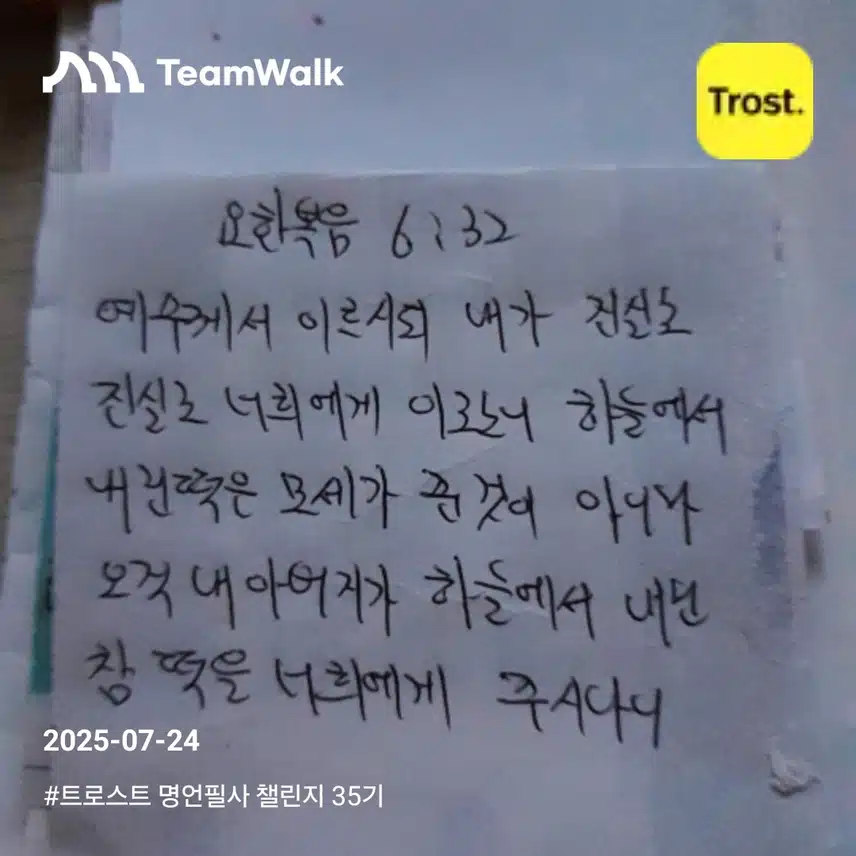 TeamWalk
Trost.
요한복음 6:32
예수께서 이르시되 내가 진실로
진실로 너희에게 이르노니 하늘에서
내린떡은 모세가 준것이 아니다
오직 내 아버지가 하늘에서 내린
참 떡을 너희에게 주시나니
2025-07-24
#트로스트 명언필사 챌린지 35기